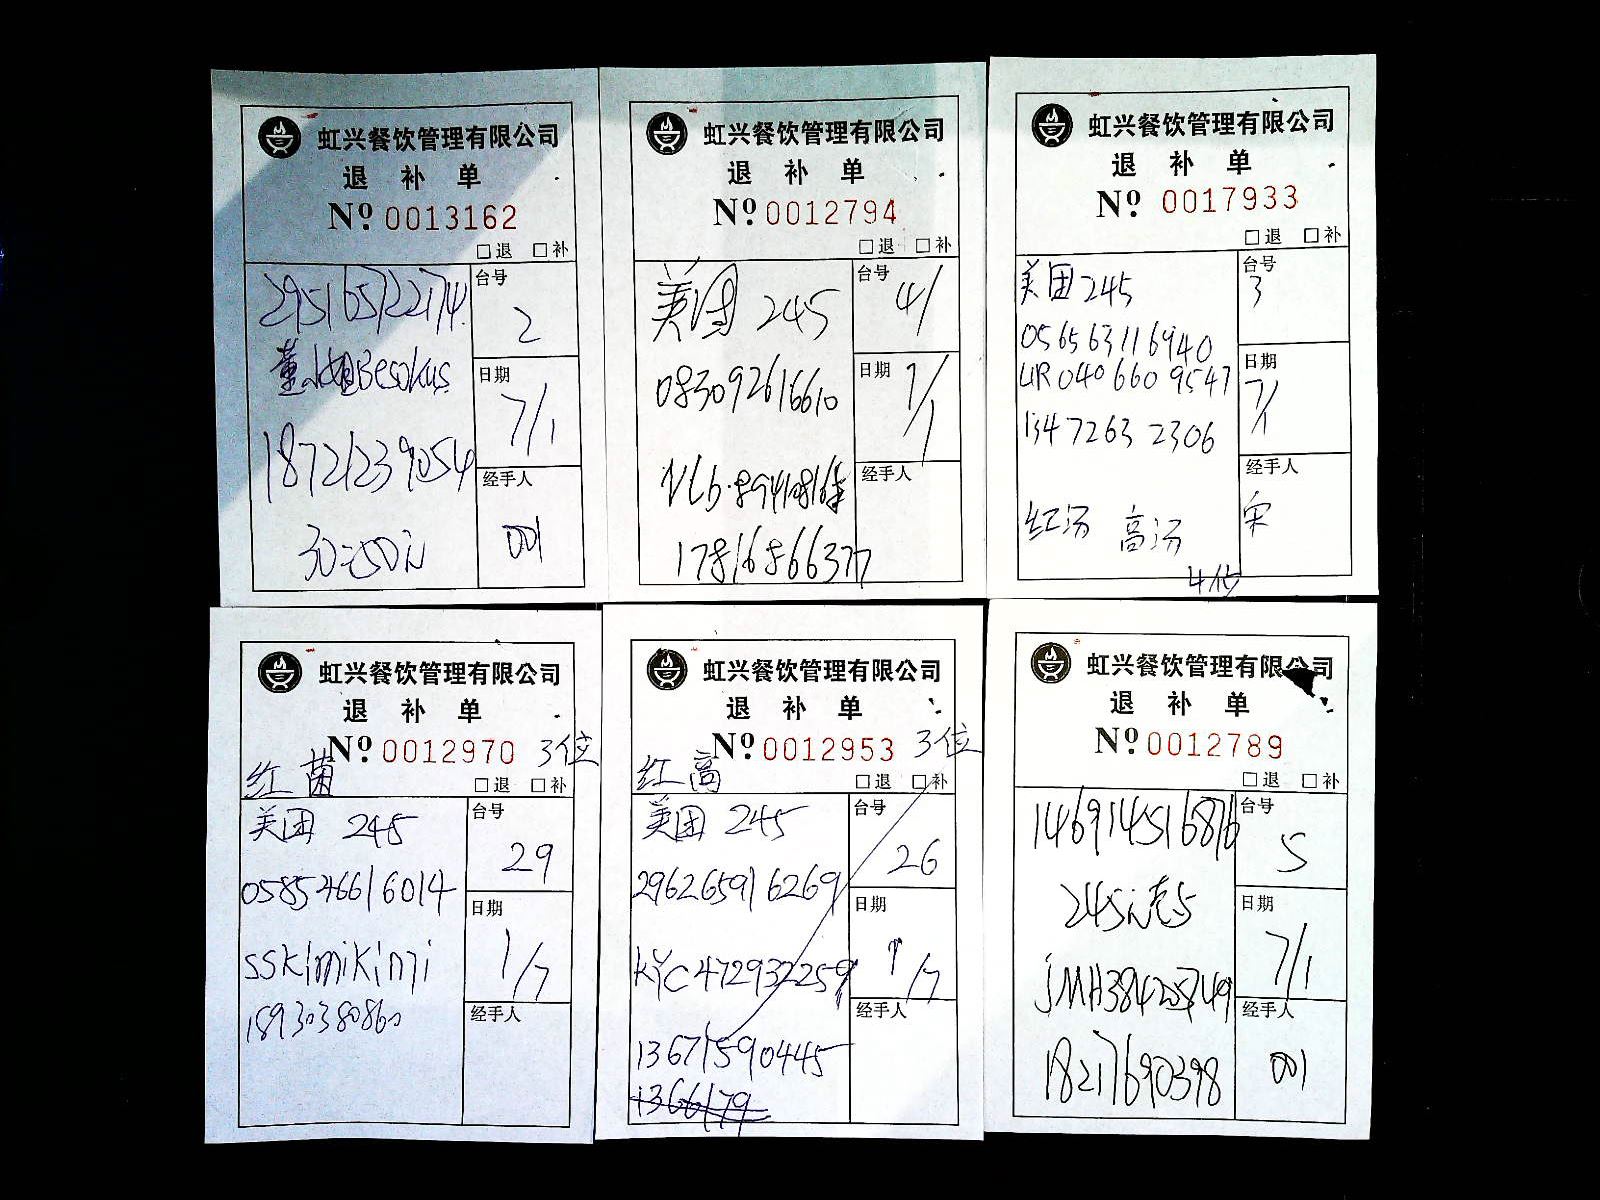 虹兴餐饮管理有限公司
退 补 单
Nº 0013162
□退 □补
295165722174
台号
2
Besokus
日期
7/1
18721239054
经手人
001
虹兴餐饮管理有限公司
退 补 单
Nº 0012794
□退 □补
美团 245
台号
41
083092616610
日期
7/1
经手人
17816866377
虹兴餐饮管理有限公司
退 补 单
Nº 0017933
□退 □补
美团 245
台号
3
056563116940
UR040 660 9547
日期
7/1
134 7263 2306
经手人
宋
红汤 高汤
4位
虹兴餐饮管理有限公司
退 补 单
Nº 0012970 3位
红 菌
□退 □补
美团 245
台号
29
058546616014
日期
1/7
sskimikimi
18930380860
经手人
虹兴餐饮管理有限公司
退 补 单
Nº 0012953 3位
红 高
□退 □补
美团 245
台号
26
296265916269
日期
1/7
KYC472932259
经手人
13671590445
1366179
虹兴餐饮管理有限公司
退 补 单
Nº 0012789
□退 □补
146914516876
台号
5
日期
7/1
JMH384258749
经手人
18217690398
001